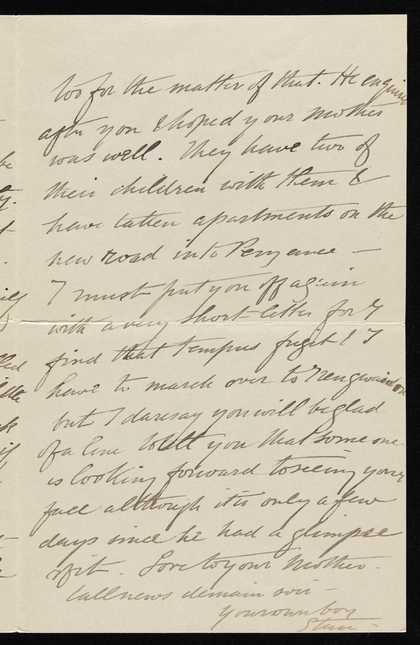 too for the matter of that. He enquired
after you & hoped your Mother
was well. They have two of
their children with them &
have taken apartments on the
new road into Penzance —
I must put you off again
with a very short letter for I
find that tempus fugit! I
have to march over to Trengwainton
but I daresay you will be glad
of a line to tell you that some one
is looking forward to seeing your
face although it is only a few
days since he had a glimpse
of it. Love to your Mother.
all news demain soir —
Your own boy